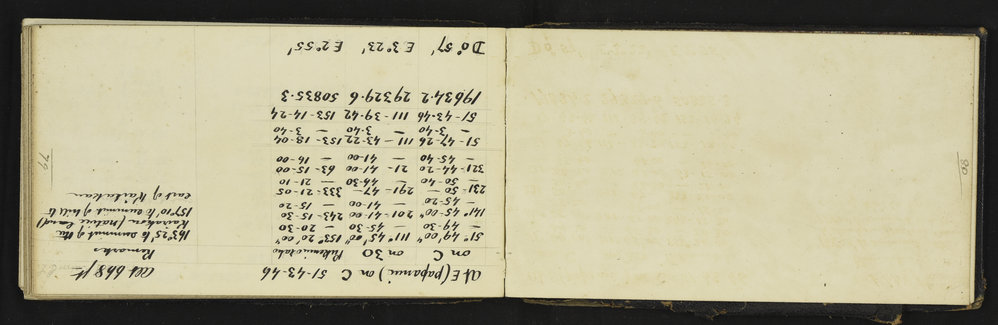 At E (papanui) on C 51-43-46 Alt 668 ft
on C on 30 Pukemiotako Remarks
51° 49' 00" 111° 45' 00" 153° 20' 00"
— 49-30 — 45-30 — 20-30
141° 45-00" 201-41-00 243-15-30
— 45-20 — 41-00 — 15-20
231-50 — 291-47 — 333-21-05
— 50-40 — 46-30 — 21-10
321-44-20 21-41-00 63-15-00
— 45-40 — 41-00 — 16-00
51-47-26 111-43-22 153-18-04
— 3-40 — 3-40 — 3-40
51-43-46 111-39-42 153-14-24
19634.2 29329.6 50835.3
D 0° 57' E 3° 23' E 2° 55'
163° 25' to summit of the
(native land)
157° 10' to summit of hill to
east of
79
80